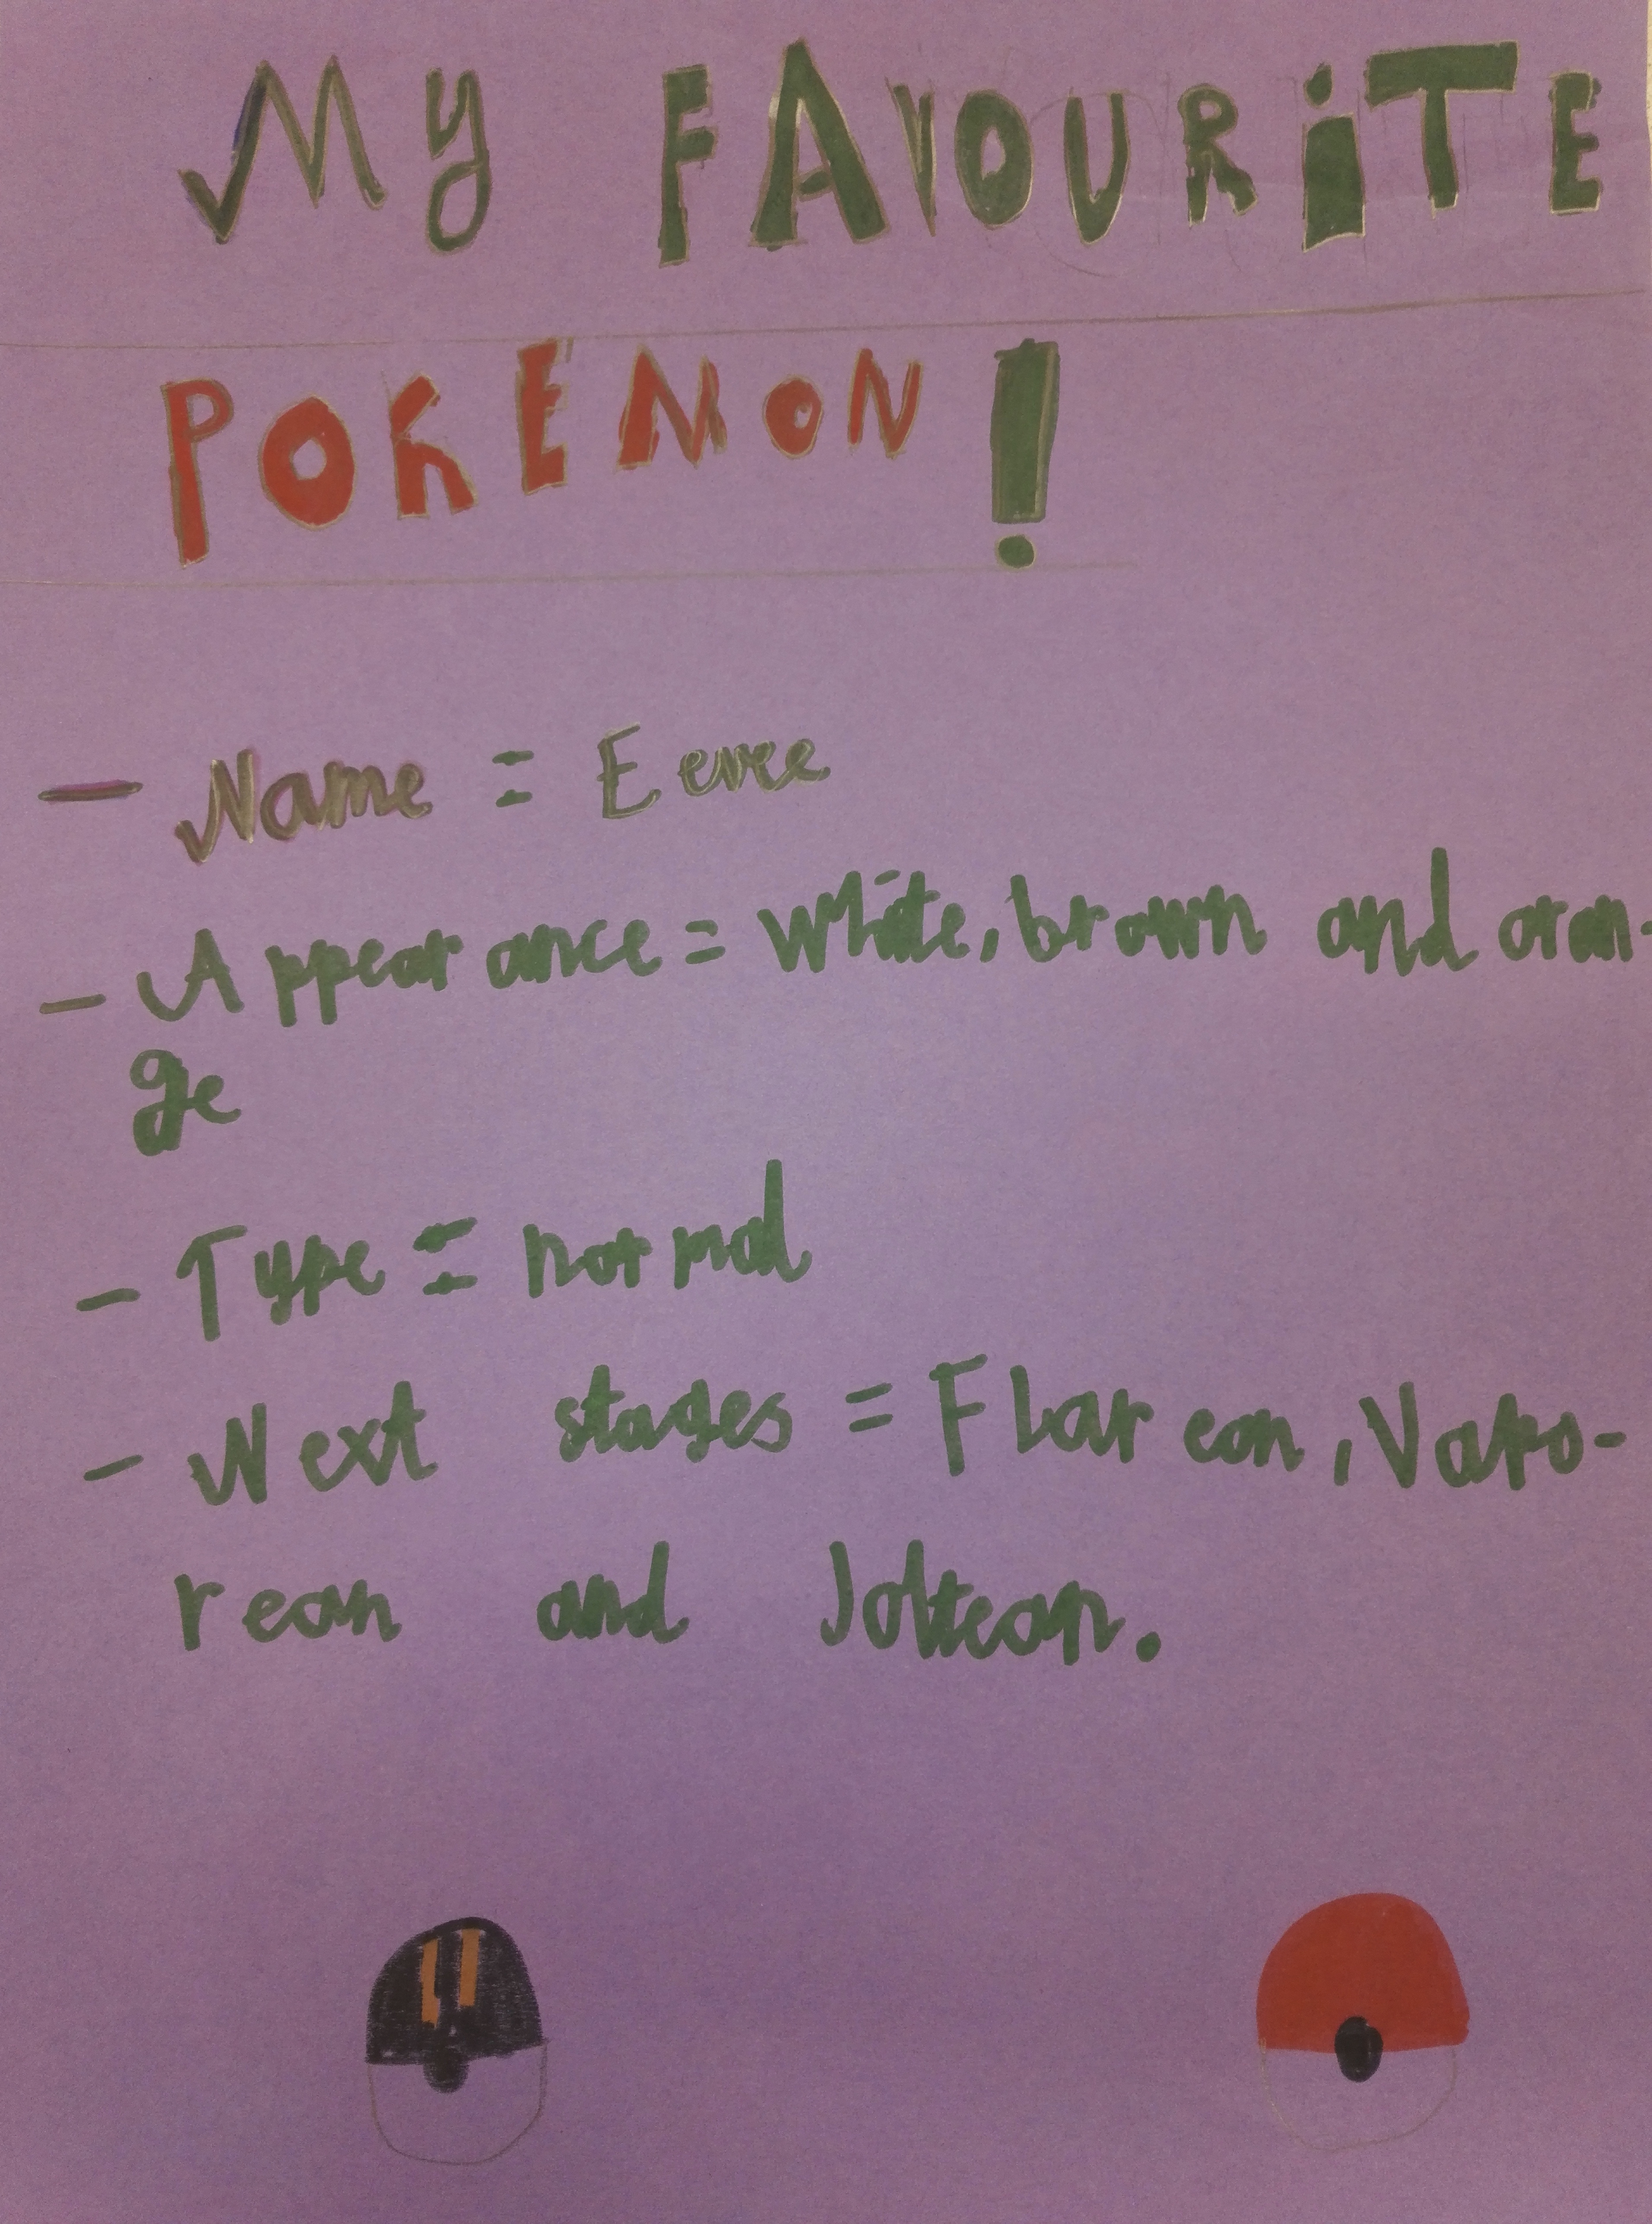 My FAVOURiTE
POKEMON!
- Name = Eevee
- Appearance = White, brown and oran-
ge
- Type = normal
- Next stages = Flareon, Vapo-
rean and Joltean.